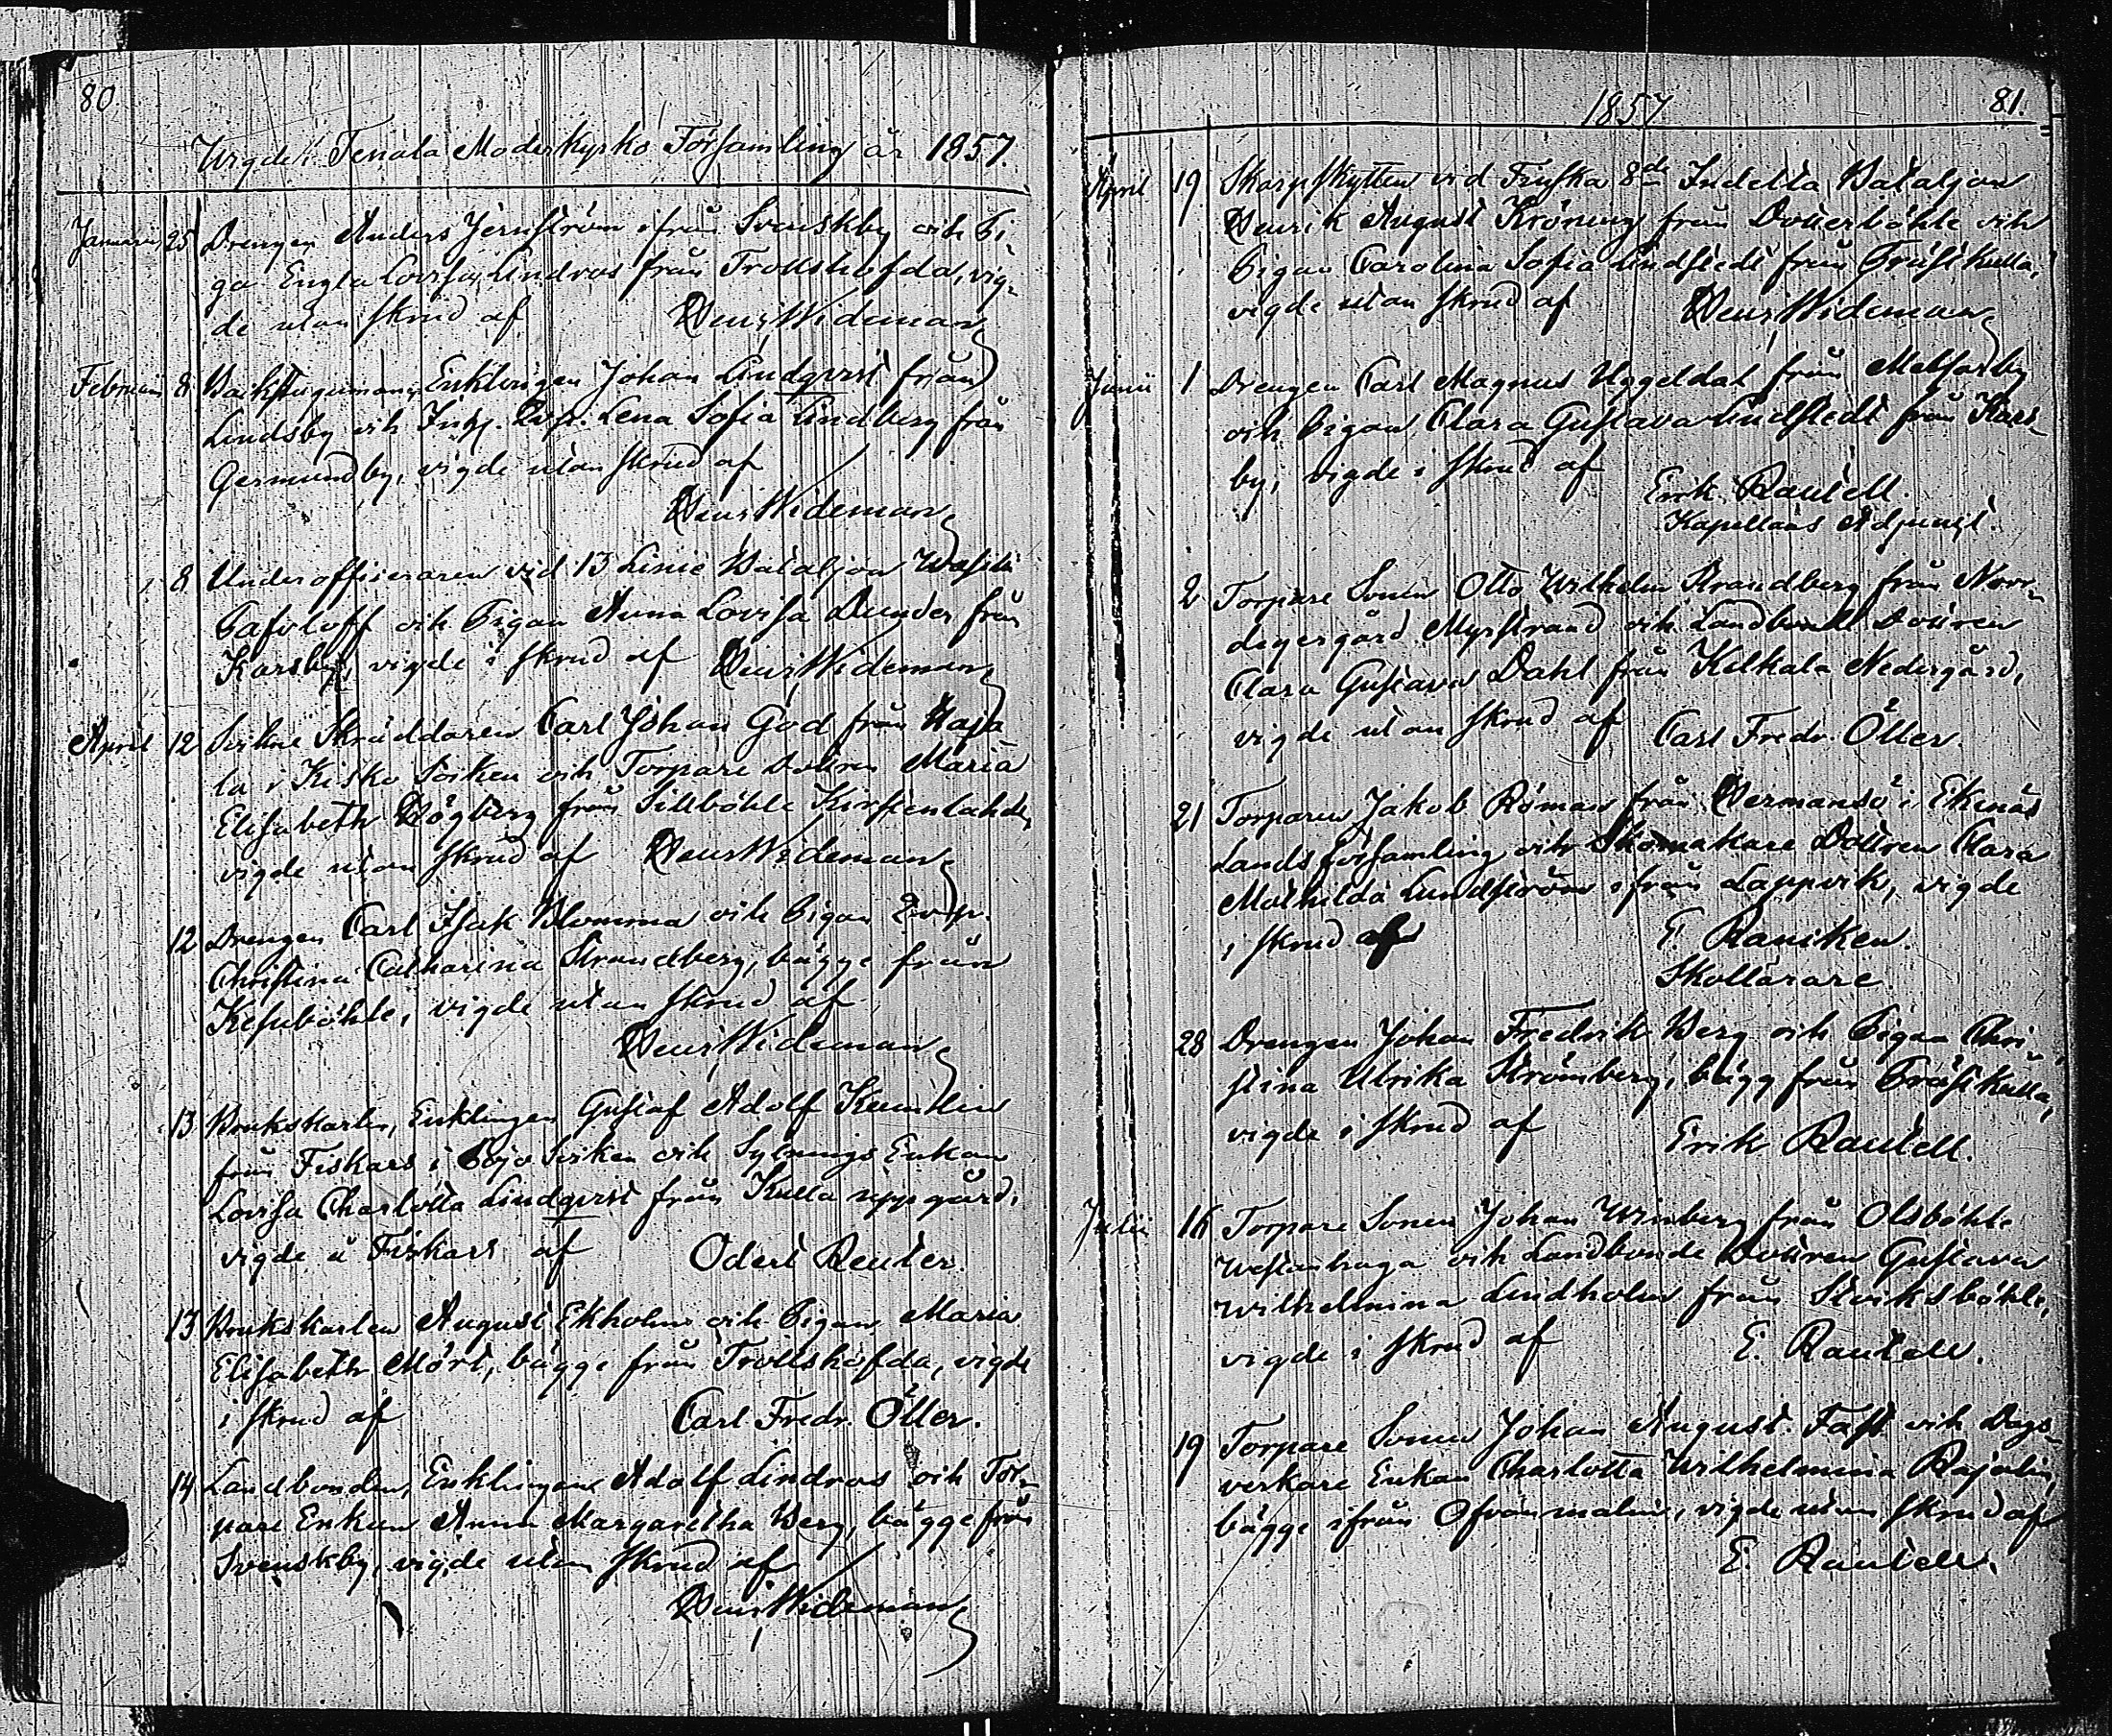 80.
Vigde i Tenala Moderkyrko Församling år 1857.
Januarii 25 Drengen Anders Jernström ifrån Svenskby och Pi-
ga Engla Lovisa Lindroos från Trollshofda, vig-
de utan skrud af Henr Wideman
Februarii 8 Backstugumannen Enklingen Johan Lindqvist från
Lindsby och Inhy. Lena Sofia Lindberg från
Germundby, vigde utan skrud af
Henr Wideman
8 Underofficeraren vid 13 Linie Bataljon Wasili
Pafvloff och Pigan Anna Lovisa Dunder från
Karsby, vigde i skrud af Henr Wideman
April 12 Sockne Skräddaren Carl Johan God från Haja
la i Kisko Socken och Torpare Dottren Maria
Elisabeth Högberg från Sillböhle Kirstenlahde,
vigde utan skrud af Henr Wideman
12 Drengen Carl Isak Blomma och Pigan
Christina Catharina Strandberg, bägge från
Kesuböhle, vigde utan skrud af
Henr Wideman
13 Brukskarlen, Enklingen Gustaf Adolf
från Fiskars i Pojo Socken och Sytnings Enkan
Lovisa Charlotta Lindqvist från Kulla uppgård,
vigde å Fiskars af Odert Reuter.
13 Brukskarlen August Ekholm och Pigan Maria
Elisabeth Mört, bägge från Trollshofda, vigde
i skrud af Carl Fredr. Öller.
14 Landbonden, Enklingen Adolf Lindroos och Tor-
pare Enkan Anna Margaretha Berg, bägge från
Svenskby, vigde utan skrud af
Henr Wideman
1857
81.
April 19 Skarpskytten vid Finska 8de Indelta Bataljon
Henrik August Kröning från Dotterböhle och
Pigan Carolina Sofia Lindstedt från Prästkulla,
vigde utan skrud af Henr Wideman
Junii 1 Drengen Carl Magnus Uggeldal från Melsarby
och Pigan Clara Gustava Lindstedt från Kars-
by, vigde i skrud af Erik Rautell.
Kapellans Adjunct.
2 Torpare Sonen Otto Wilhelm Strandberg från Norr-
degergård Myrstrand och Landbonde Dottren
Clara Gustava Dahl från Kelkala Nedergård,
vigde utan skrud af Carl Fredr. Öller.
21 Torparen Jakob Röman från Hermansö i Ekenäs
Landsförsamling och Skomakare Dottren Clara
Mathilda Lundström ifrån Lappvik, vigde
i skrud af E Raniken.
Skollärare.
28 Drengen Johan Fredrik Berg och Pigan Chri-
stina Ulrika Strömberg, bägg från Prästkulla,
vigde i skrud af Erik Rautell.
Julii 16 Torpare Sonen Johan Winberg från Olsböhle
Westanhaga och Landbonde Dottren Gustava
Wilhelmina Lindholm från Skviksböhle,
vigde i skrud af E. Rautell.
19 Torpare Sonen Johan August Fast och Dags-
verkare Enkan Charlotta Wilhelmina Rajalin,
bägge ifrån Ofvanmalm, vigde utan skrud af
E. Rautell.